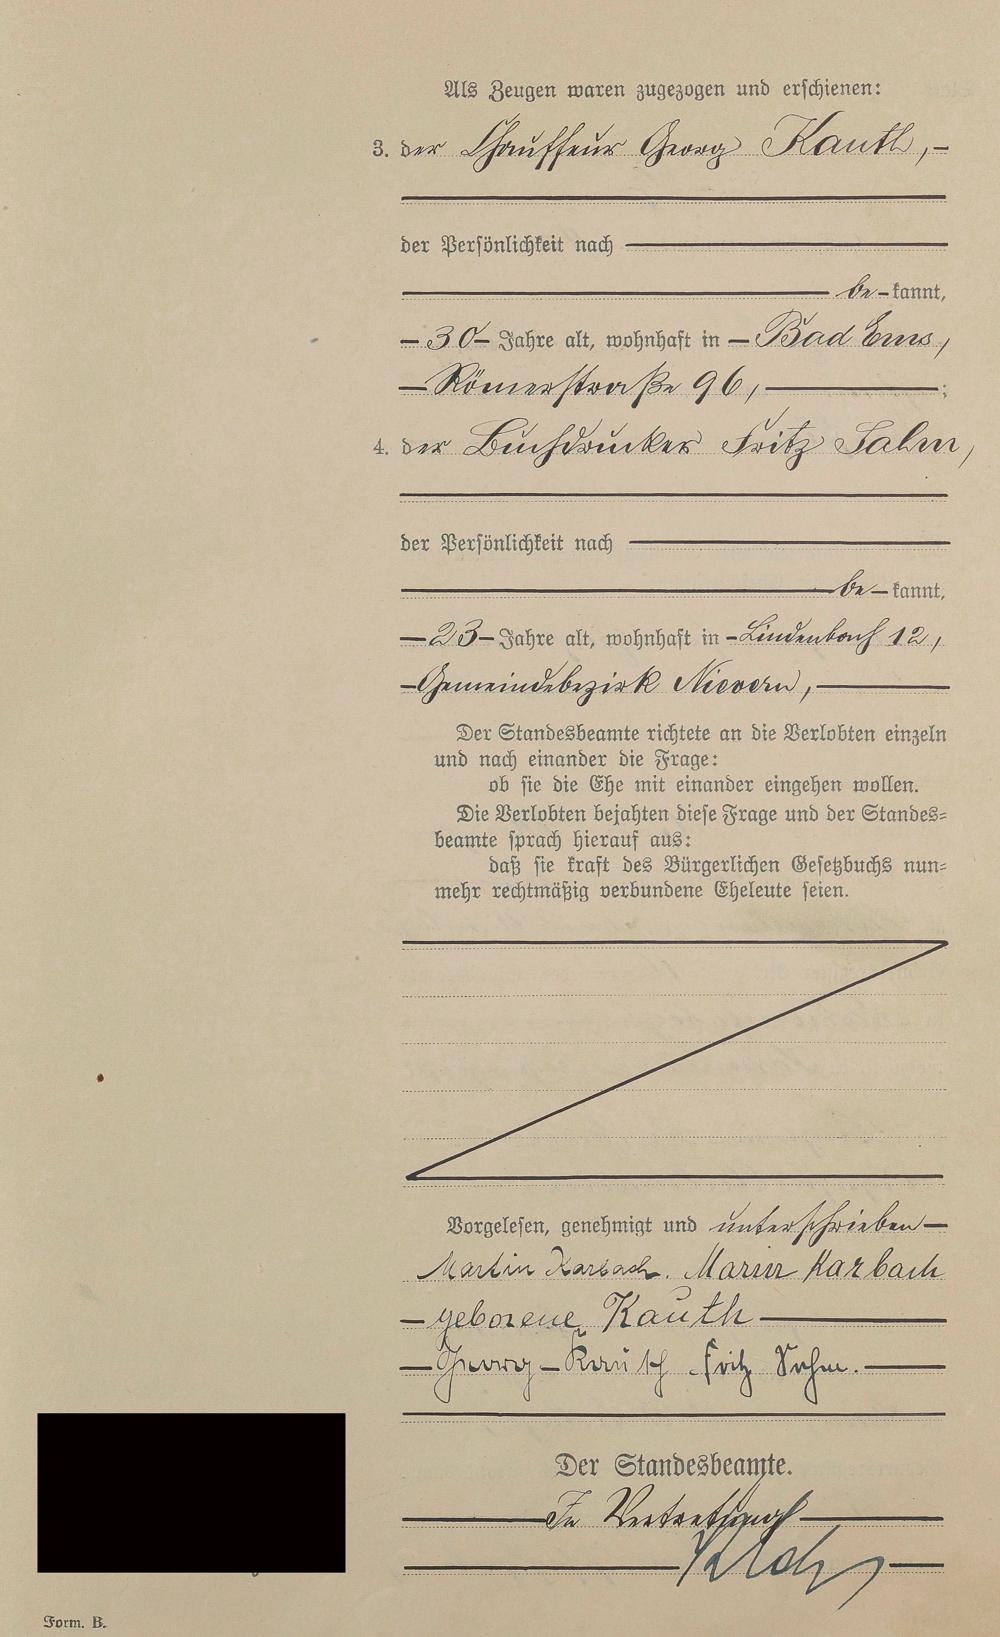 Als Zeugen waren zugezogen und erschienen:
3. der Chauffeur Georg Kauth,
der Persönlichkeit nach
be-kannt,
30 Jahre alt, wohnhaft in Bad Ems,
Römerstraße 96, ;
4. der Buchdrucker Fritz Sahm,
der Persönlichkeit nach
be-kannt,
23 Jahre alt, wohnhaft in Lindenbach 12,
Gemeindebezirk Nievern,
Der Standesbeamte richtete an die Verlobten einzeln
und nach einander die Frage:
ob sie die Ehe mit einander eingehen wollen.
Die Verlobten bejahten diese Frage und der Standes-
beamte sprach hierauf aus:
daß sie kraft des Bürgerlichen Gesetzbuchs nun-
mehr rechtmäßig verbundene Eheleute seien.
Vorgelesen, genehmigt und unterschrieben
Martin Karbach. Karbach
geborene Kauth
Georg Kauth Fritz Sahm.
Der Standesbeamte.
In Vertretung
Form. B.